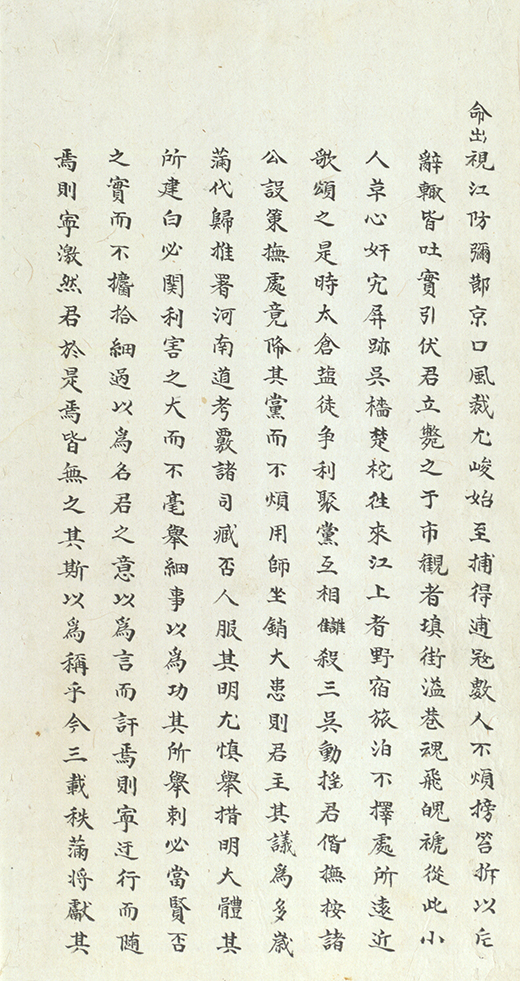 命出視江防彌節京口風裁尤峻始至捕得逋冦數人不煩搒笞折以片
辭輙皆吐實引伏君立斃之于市觀者填街溢巷魂飛魄褫從此小
人草心奸宄屏跡吳檣楚柁徃來江上者野宿旅泊不擇處所遠近
歌頌之是時太倉盐徒争利聚黨互相讎殺三吳動揺君偕撫按諸
公設策撫處竟降其黨而不煩用師坐銷大患則君主其議為多歲
滿代歸推署河南道考覈諸司臧否人服其明尤慎舉措明大體其
所建白必関利害之大而不毫舉細事以為功其所舉刺必當賢否
之實而不攟拾細過以為名君之意以為言而訐焉則寧迂行而随
焉則寧激然君於是焉皆無之其斯以為稱乎今三載秩滿将獻其